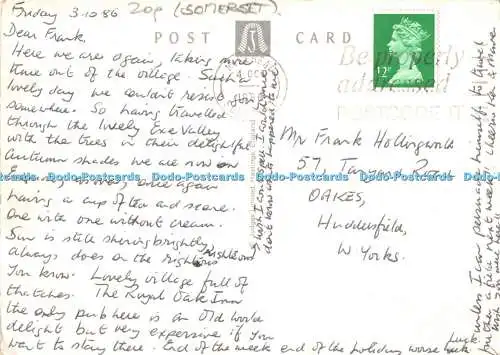 Friday 3·10·86 20p (SOMERSET).
POST CARD
Dear Frank,
Here we are again, taking more
time out of the village. Such a
lovely day we couldn't resist going
somewhere. So having travelled
through the lovely Exe Valley
with the trees in their delightful
Autumn shades we are now
once again
having a cup of tea and scone.
One with one without cream.
Sun is still shining brightly,
always does on the righteous
You know. Lovely village full of
thatches. The Royal Oak Inn
the only pub here is an Old World
delight but very expensive if you
want to stay there. End of the week end of the holiday worse luck.
4 OC
Be properly
addressed
POSTCODE IT
12P
Mr Frank Hollingworth
57,
OAKES,
Huddersfield,
W Yorks.
Dodo-Postcards Dodo-Postcards Dodo-Postcards Dodo-Postcards
Dodo-Postcards Dodo-Postcards Dodo-Postcards Dodo-Postcards